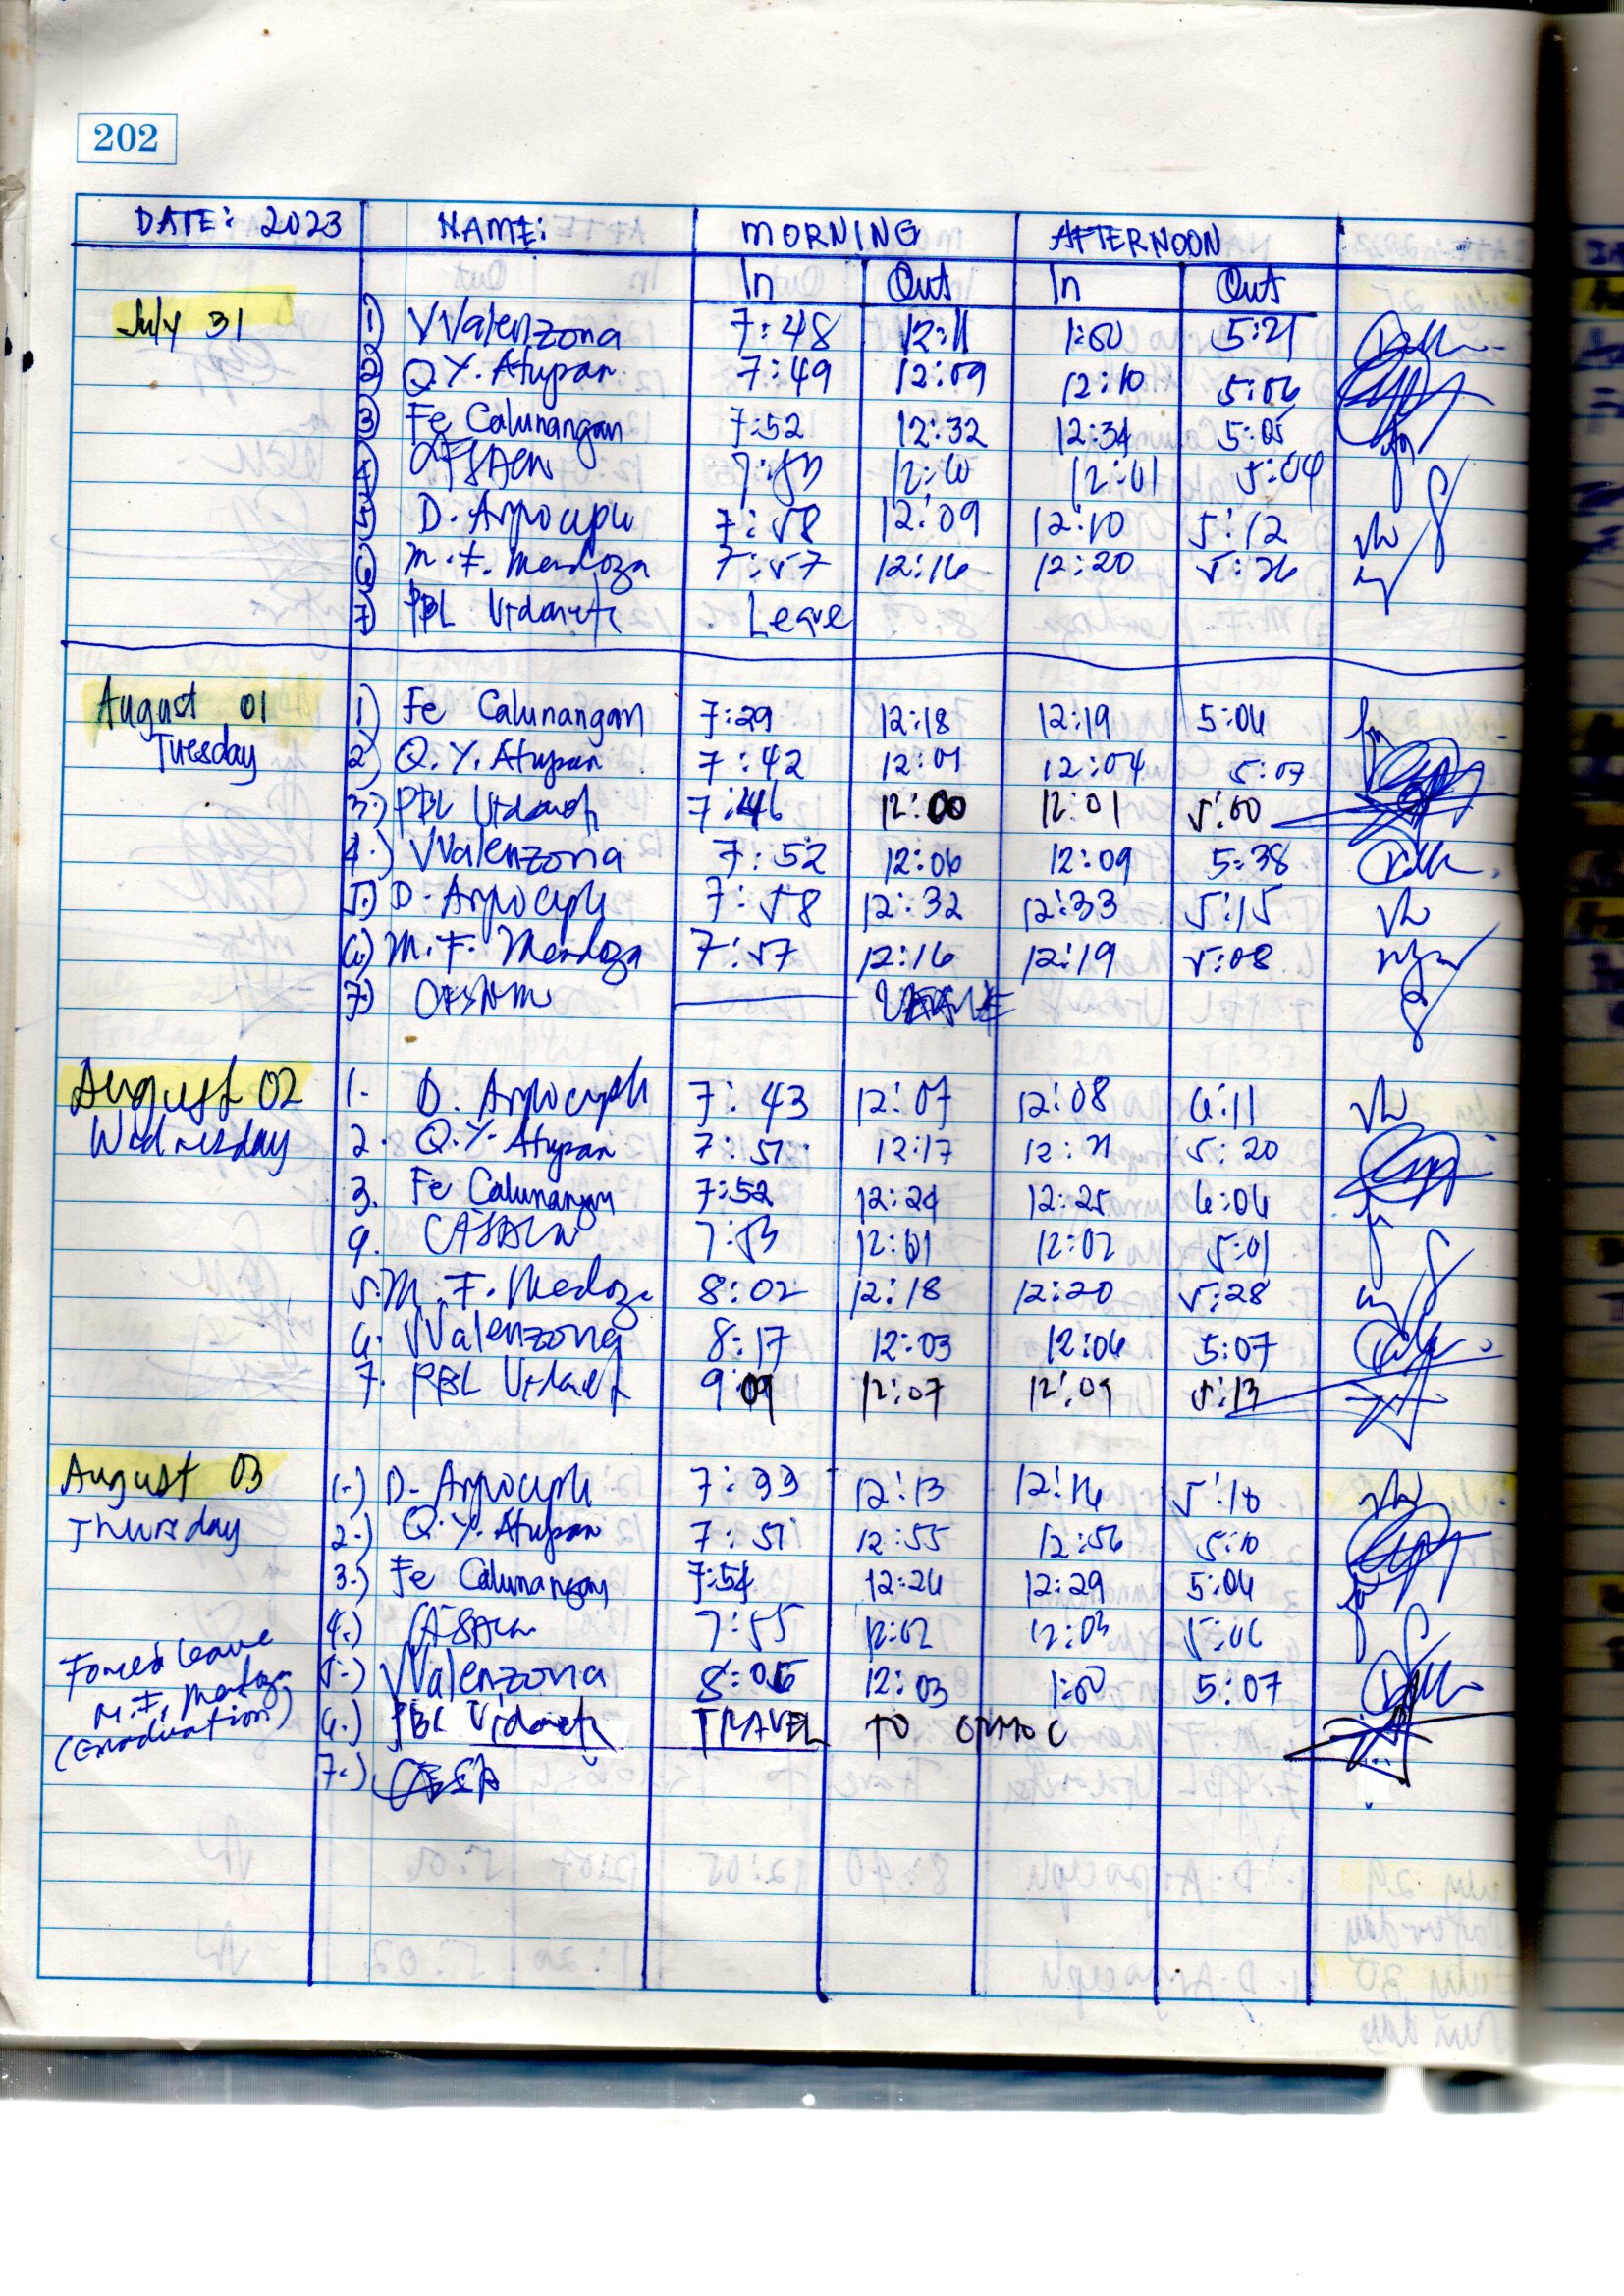 202
DATE: 2023 NAME: MORNING AFTERNOON
In Out In Out
July 31 1) VValenzona 7:48 12:11 1:00 5:21
2) Q.Y. Atupan 7:49 12:09 12:10 5:06
3) Fe Calunangan 7:52 12:32 12:34 5:05
4) 7:53 12:00 12:01 5:04
5) D. 7:58 12:09 12:10 5:12
6) M.F. Mendoza 7:57 12:16 12:20 5:26
7) PBL Leave
August 01 1) Fe Calunangan 7:29 12:18 12:19 5:06
Tuesday 2) Q.Y. Atupan 7:42 12:01 12:04 5:07
3.) PBL 7:46 12:00 12:01 5:00
4.) VValenzona 7:52 12:06 12:09 5:38
5.) D. 7:58 12:32 12:33 5:15
6.) M.F. Mendoza 7:57 12:16 12:19 5:08
7.)
August 02 1. D. 7:43 12:07 12:08 6:11
Wednesday 2. Q.Y. Atupan 7:51 12:17 12:21 5:20
3. Fe Calunangan 7:52 12:24 12:25 6:06
4. 7:53 12:01 12:02 5:01
5. M.F. Medoza 8:02 12:18 12:20 5:28
6. VValenzona 8:17 12:03 12:06 5:07
7. PBL 9:09 12:07 12:09 5:13
August 03 1.) D. 7:33 12:13 12:16 5:18
Thursday 2.) Q.Y. Atupan 7:51 12:55 12:56 5:10
3.) Fe Calunangan 7:54 12:26 12:29 5:06
4.) 7:55 12:02 12:03 5:06
Forced Leave 5.) VValenzona 8:05 12:03 1:00 5:07
M.F. Mendoza 6.) PBL TRAVEL TO ORMOC
(Graduation) 7.)